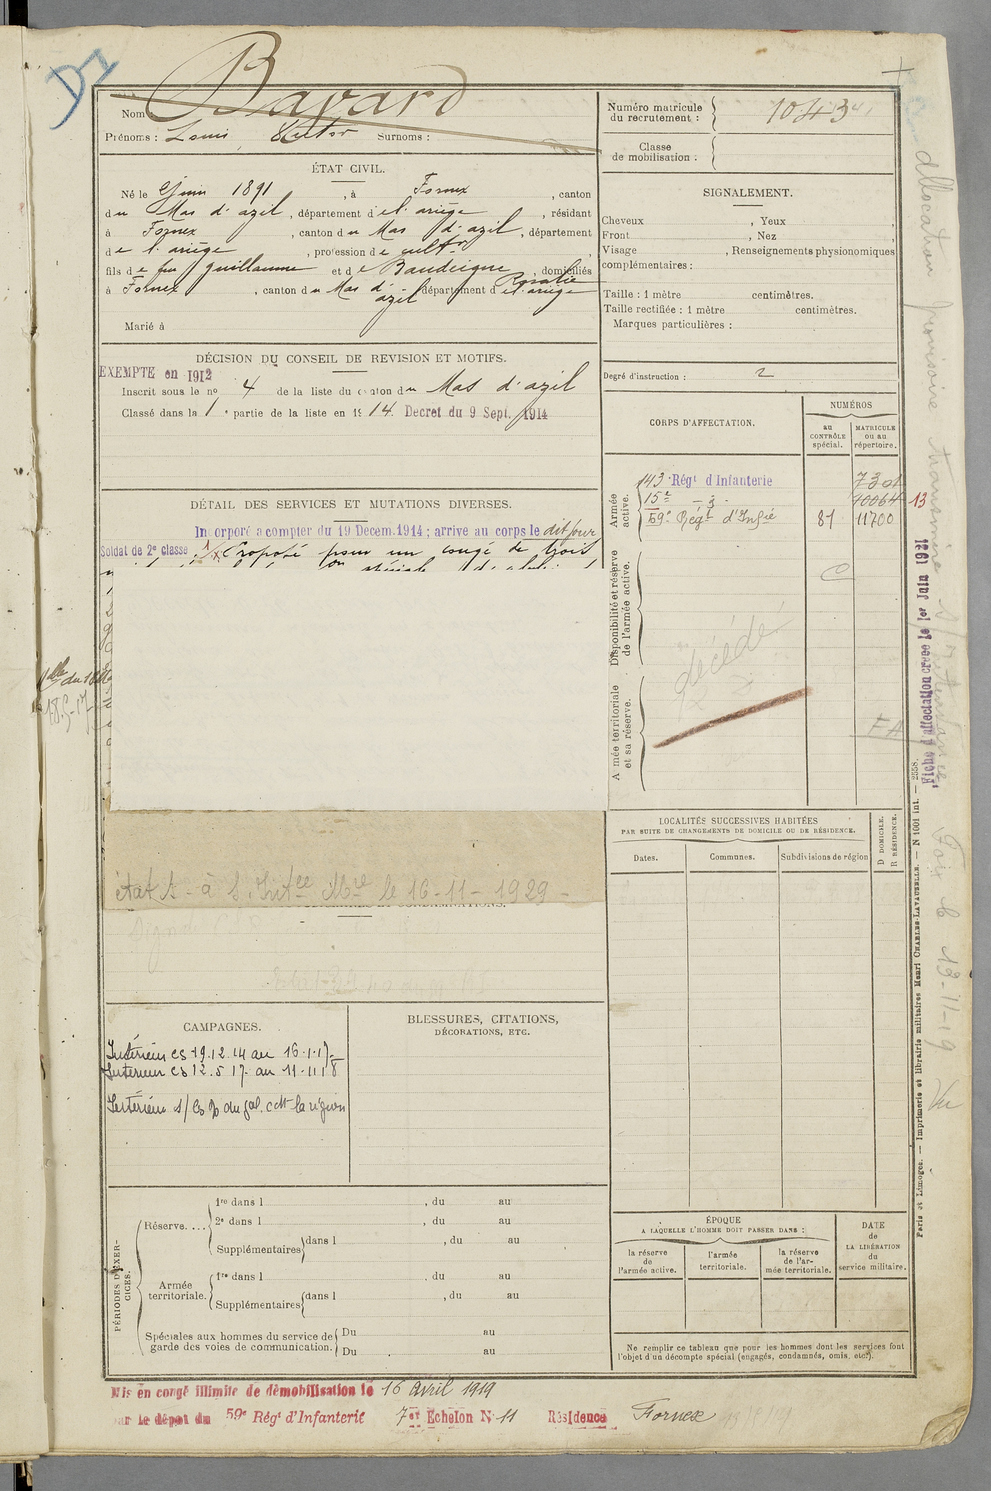 D1
Nom : Bavard
Prénoms : Louis Victor Surnoms :
Numéro matricule
du recrutement : 1043
Classe
de mobilisation :
ÉTAT CIVIL.
Né le juin 1891, à Fornex, canton
du Mas d'azil, département de l'ariège, résidant
à Fornex, canton du Mas d'azil, département
de l'ariège, profession de cultr
fils de feu guillaume et de Baudeigne Rosalie, domiciliés
à Fornex, canton du Mas d'azil département de l'ariège
Marié à
SIGNALEMENT.
Cheveux , Yeux ,
Front , Nez ,
Visage , Renseignements physionomiques
complémentaires :
Taille : 1 mètre centimètres.
Taille rectifiée : 1 mètre centimètres.
Marques particulières :
Degré d'instruction : 2
DÉCISION DU CONSEIL DE REVISION ET MOTIFS.
EXEMPTE en 1912
Inscrit sous le no 4 de la liste du canton du Mas d'azil
Classé dans la 1e partie de la liste en 1914. Decret du 9 Sept. 1914
DÉTAIL DES SERVICES ET MUTATIONS DIVERSES.
Incorporé a compter du 19 Decem. 1914 ; arrive au corps le dit jour
Soldat de 2e classe Proposé pour un congé de trois
18.5.17
état à S. Intce Mre le 16-11-1929-
CORPS D'AFFECTATION.
NUMÉROS
au
CONTRÔLE
spécial.
MATRICULE
ou au
répertoire.
Armée
active.
143 Régt d'Infanterie 7301
15e - d - 10064 13
59e Régt d'Infie 87 11700
Disponibilité et réserve
de l'armée active.
C
décédé
Armée territoriale
et sa réserve.
FA
LOCALITÉS SUCCESSIVES HABITÉES
PAR SUITE DE CHANGEMENTS DE DOMICILE OU DE RÉSIDENCE.
Dates.
Communes.
Subdivisions de région
D DOMICILE.
R RÉSIDENCE.
CAMPAGNES.
Intérieur cs 19.12.14 au 16.1.17
Intérieur cs 12.5.17 au 11.11.18
BLESSURES, CITATIONS,
DÉCORATIONS, ETC.
PÉRIODES D'EXERCICES.
Réserve....
1re dans l , du au
2e dans l , du au
Supplémentaires dans l , du au
Armée
territoriale.
1re dans l , du au
Supplémentaires dans l , du au
Spéciales aux hommes du service de
garde des voies de communication.
Du au
Du au
ÉPOQUE
A LAQUELLE L'HOMME DOIT PASSER DANS :
la réserve
de
l'armée active.
l'armée
territoriale.
la réserve
de l'ar-
mée territoriale.
DATE
de
LA LIBÉRATION
du
service militaire.
Ne remplir ce tableau que pour les hommes dont les services font
l'objet d'un décompte spécial (engagés, condamnés, omis, etc.).
Mis en congé illimité de démobilisation le 16 avril 1919
par le dépot du 59e Régt d'Infanterie 7er Echelon No 11 Résidence Fornex
allocation provisoire transmise
Foix le 13-11-19 Vu
Fiche d'affectation créée le 1er Juin 1921
Paris et Limoges. — Imprimerie et librairie militaires Henri CHARLES-LAVAUZELLE. — N 1001 int. — 2558.